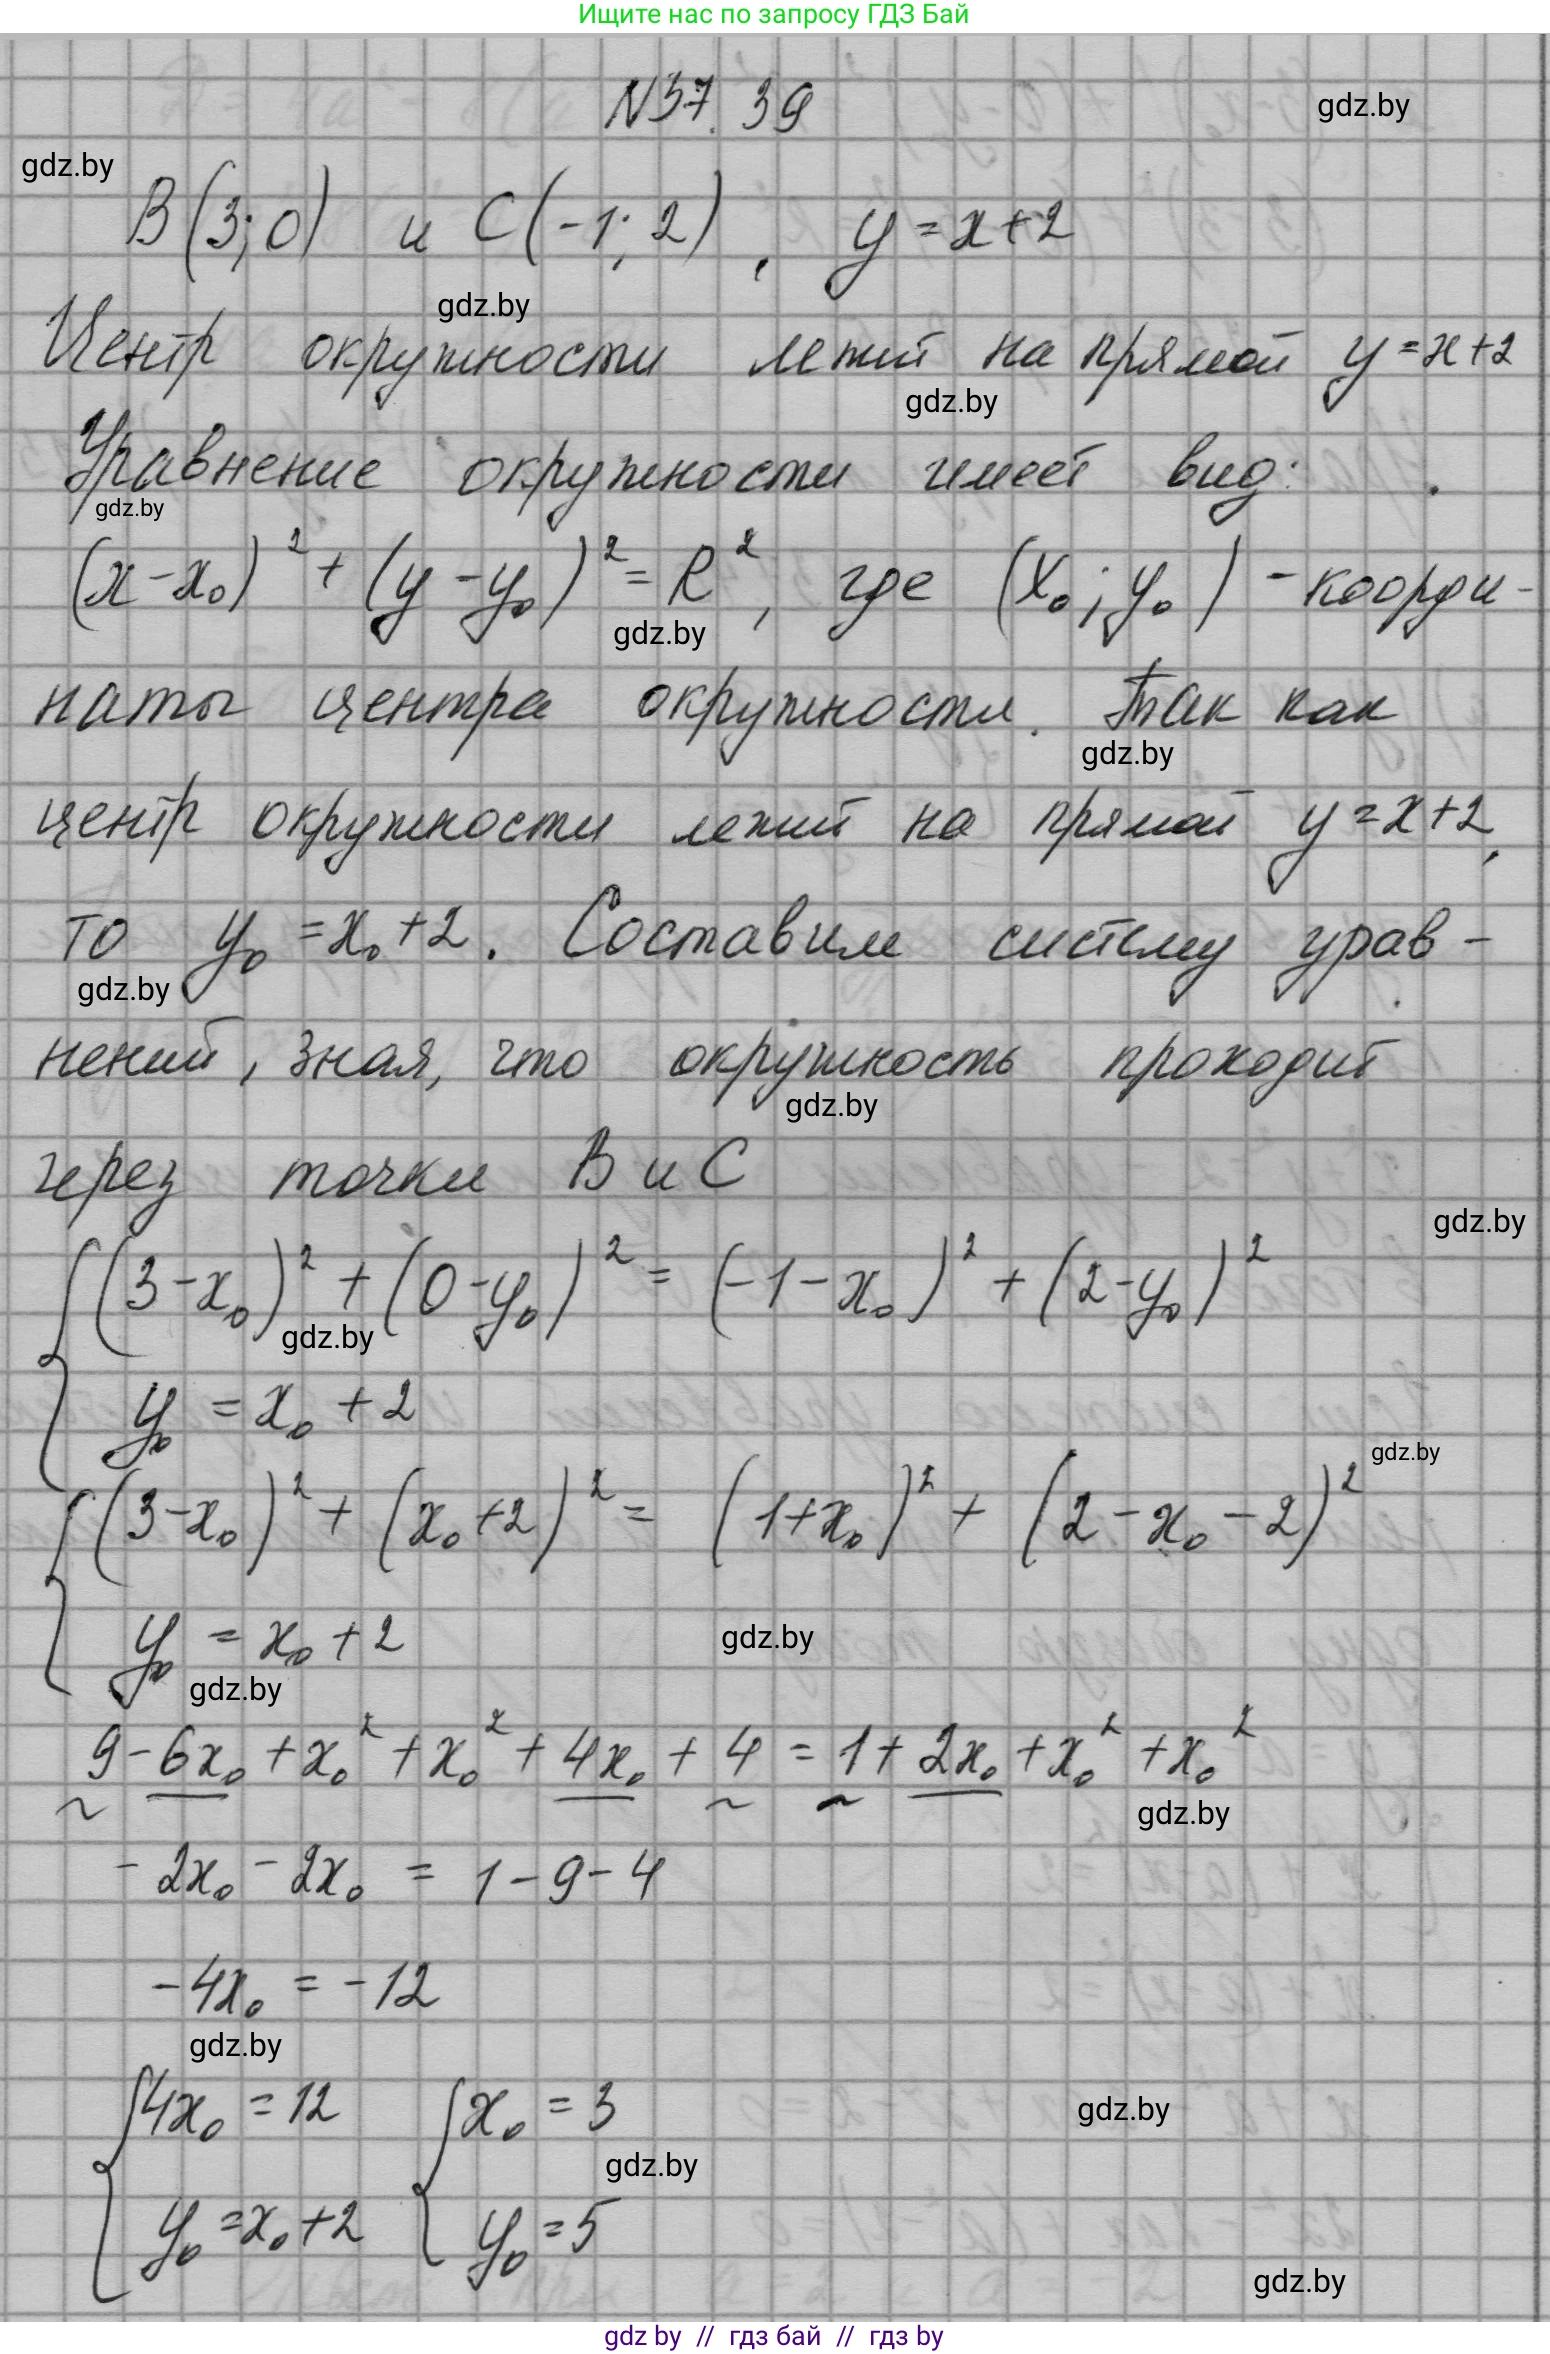 Ищите нас по запросу ГДЗ Бай
N37.39
gdz.by
gdz.by
B(3;0) и C(-1;2), y=x+2
gdz.by
Центр окружности лежит на прямой y=x+2
gdz.by
Уравнение окружности имеет вид:
gdz.by
(x-x₀)²+(y-y₀)²=R², где (x₀;y₀)-коорди-
gdz.by
наты центра окружности. Так как
gdz.by
центр окружности лежит на прямой y=x+2,
то y₀=x₀+2. Составим систему урав-
gdz.by
нений, зная, что окружность проходит
gdz.by
через точки B и C
gdz.by
(3-x₀)²+(0-y₀)²=(-1-x₀)²+(2-y₀)²
gdz.by
y₀=x₀+2
gdz.by
(3-x₀)²+(x₀+2)²=(1+x₀)²+(2-x₀-2)²
y₀=x₀+2
gdz.by
gdz.by
9-6x₀+x₀²+x₀²+4x₀+4=1+2x₀+x₀²+x₀²
gdz.by
-2x₀-2x₀=1-9-4
-4x₀=-12
gdz.by
4x₀=12 x₀=3
gdz.by
gdz.by
y₀=x₀+2 y₀=5
gdz.by
gdz by // гдз бай // гдз by